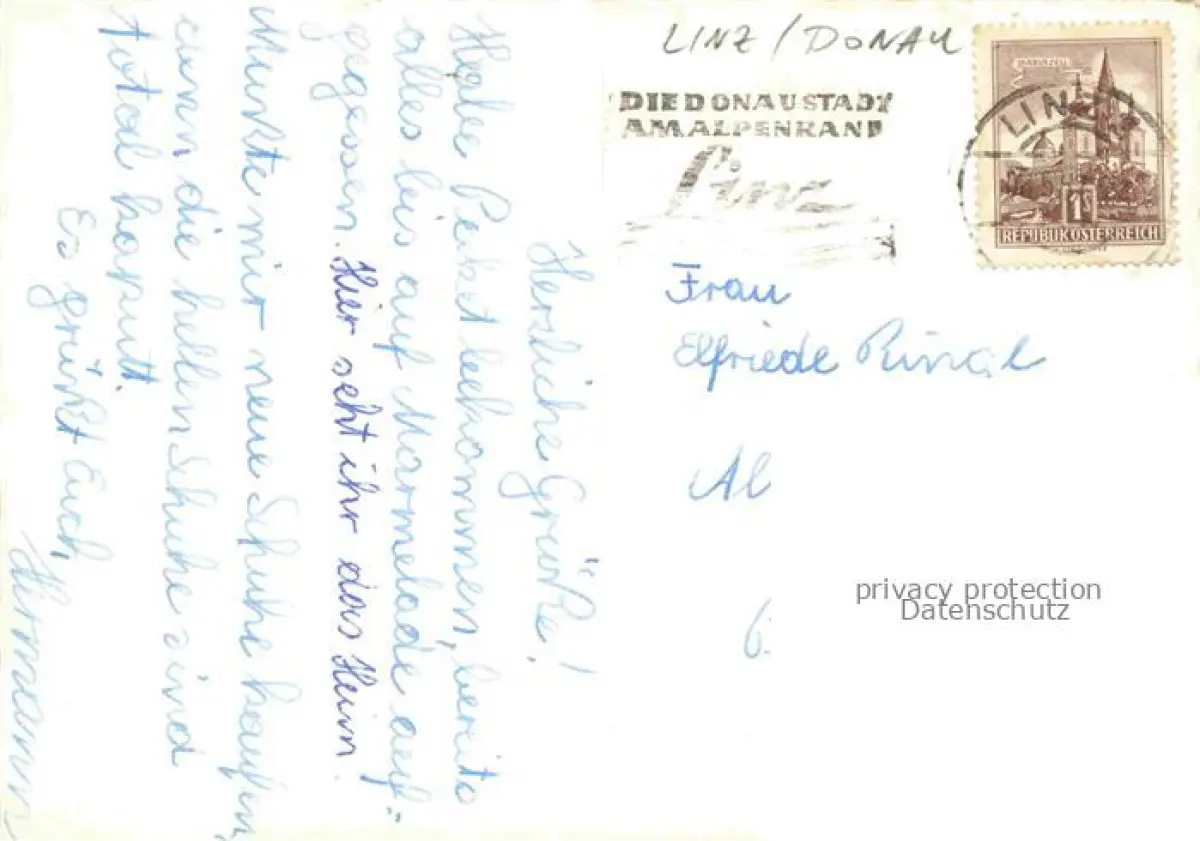 LINZ / DONAU
DIE DONAUSTADT
AM ALPENRAND
Linz
LINZ
MARIAZELL
1S
REPUBLIK ÖSTERREICH
Herzliche Grüße!
Habe Paket bekommen, bereits
alles bis auf Marmelade auf-
gegessen. Hier seht ihr das Heim.
Mußte mir neue Schuhe kaufen,
denn die hellen Schuhe sind
total kaputt.
Es grüßt Euch,
Hermann
Frau
Elfriede
Al
6.
privacy protection
Datenschutz